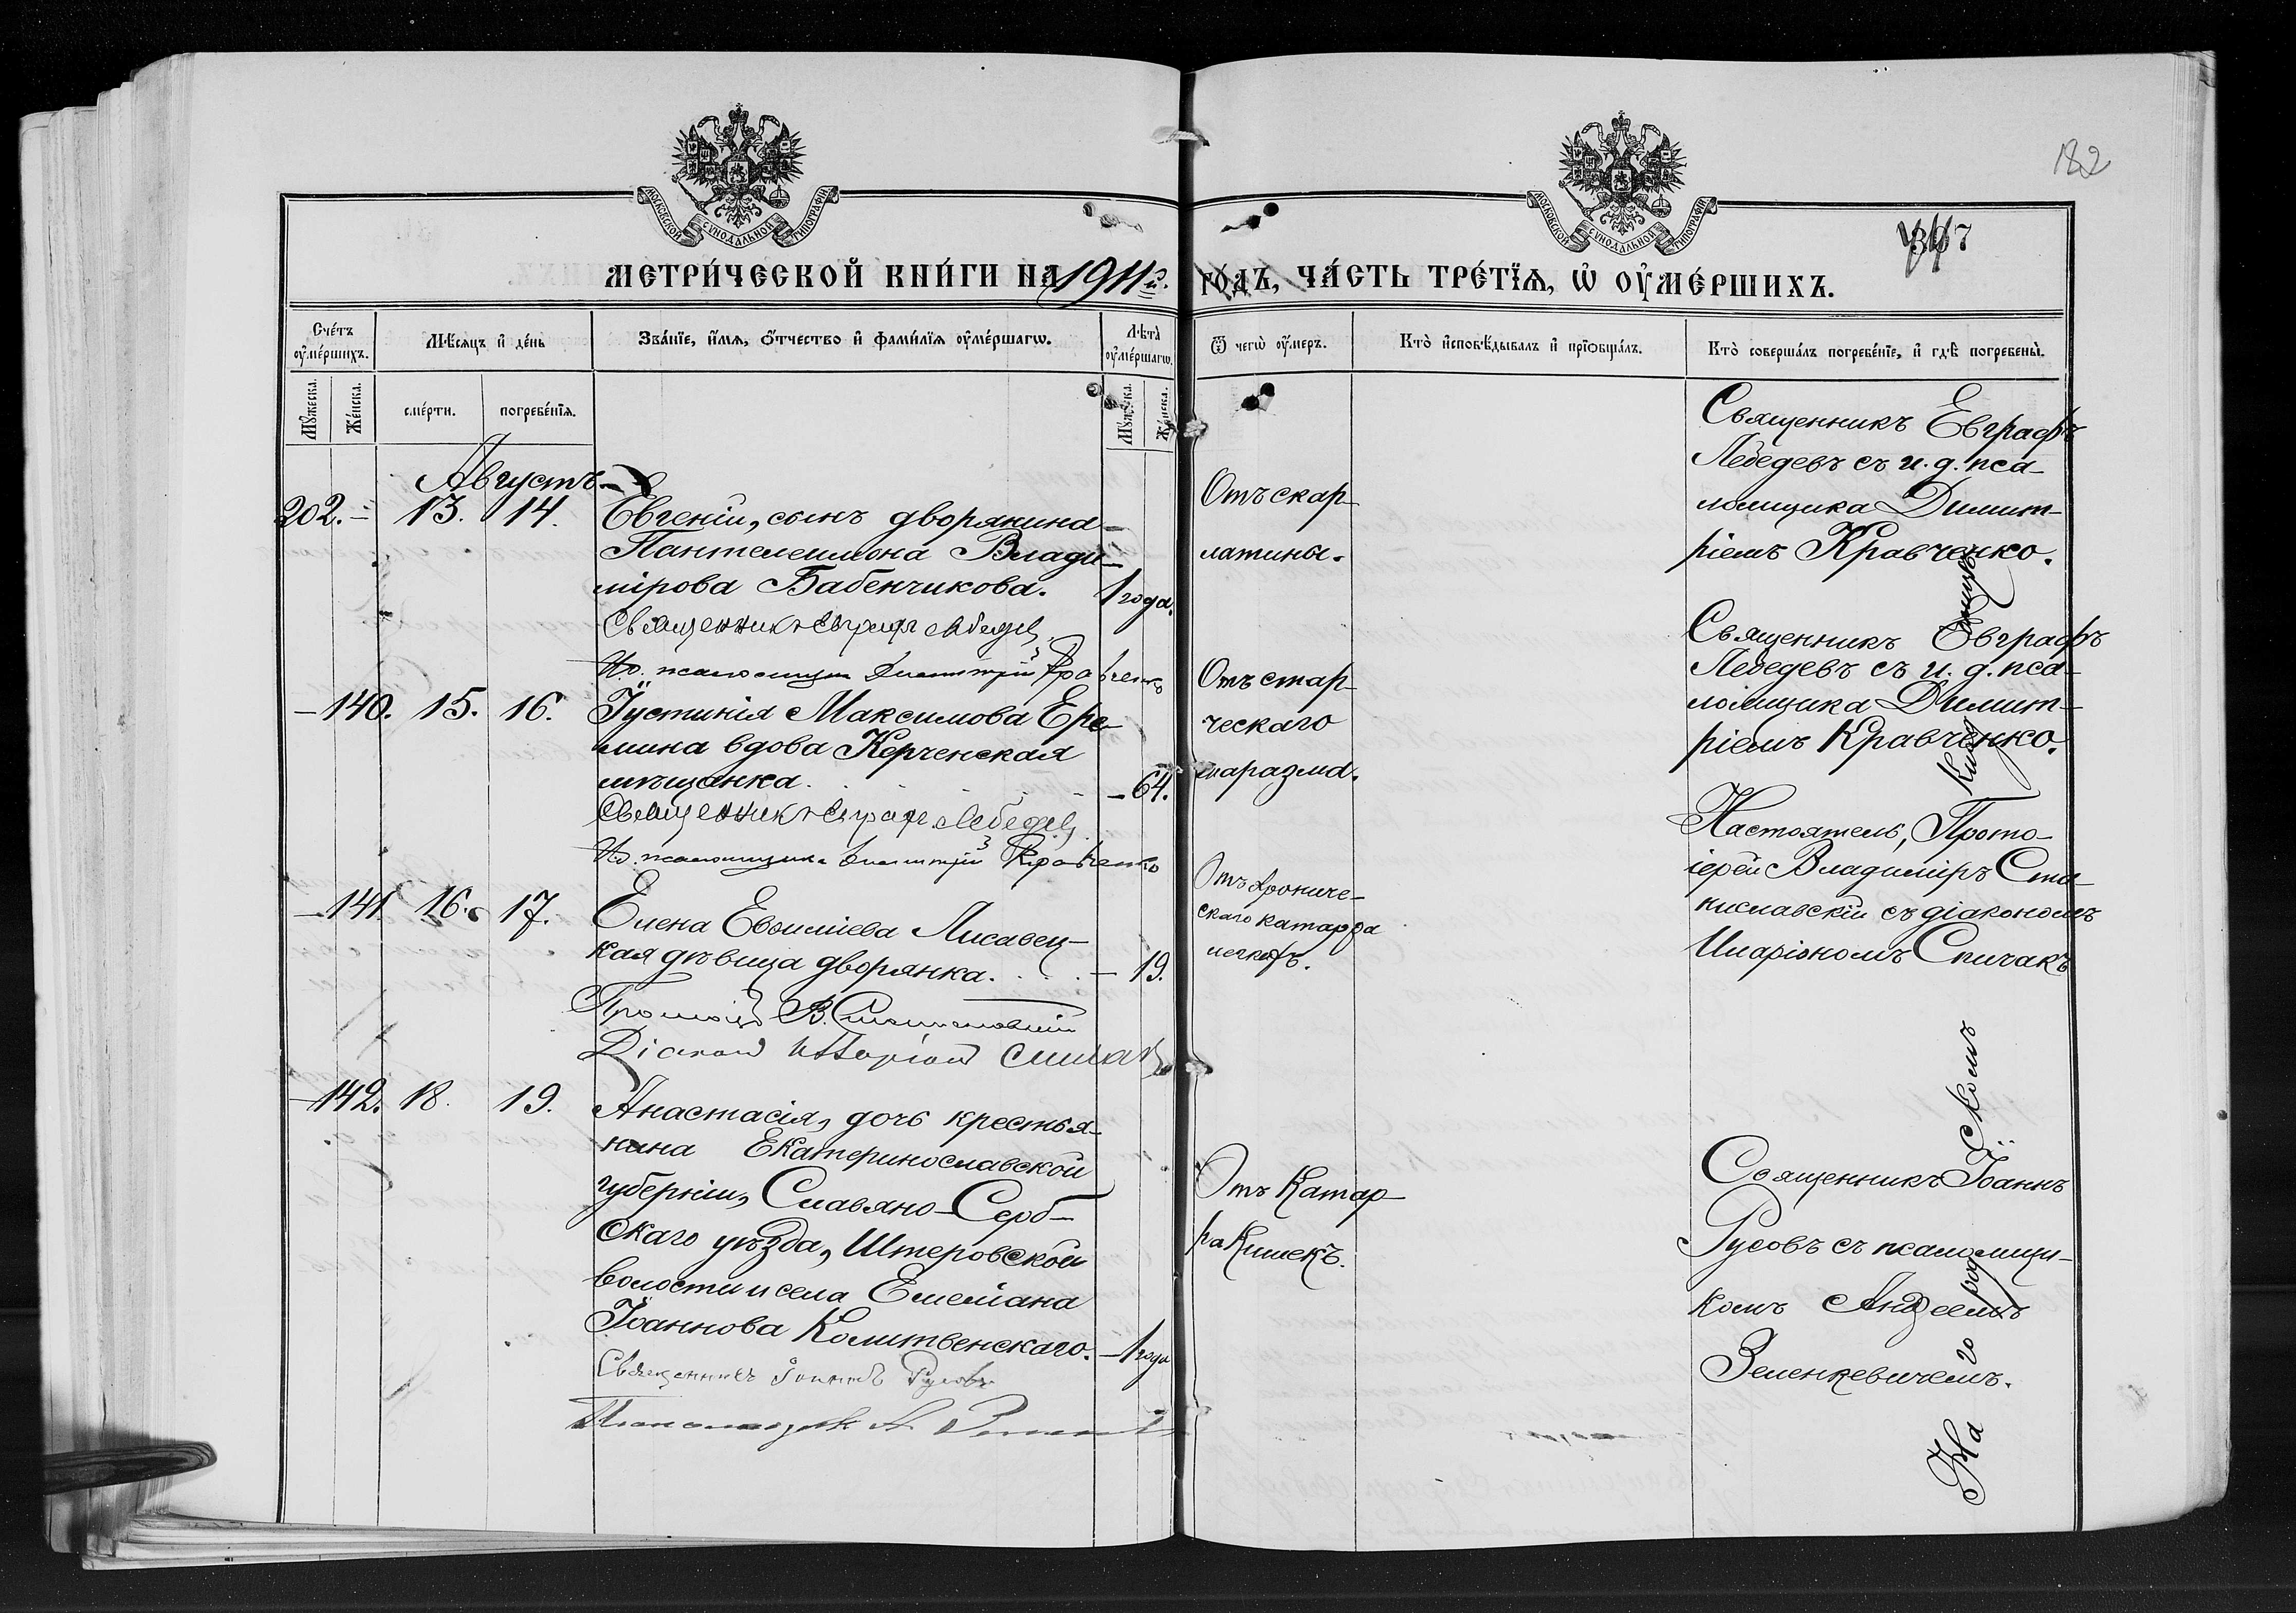 182
МОСКОВСКОЙ СѴНОДАЛЬНОЙ ТИПОГРАФІИ
МОСКОВСКОЙ СѴНОДАЛЬНОЙ ТИПОГРАФІИ
МЕТРИ́ЧЕСКОЙ КНИ́ГИ НА 1911й. ГО́ДЪ, ЧА́СТЬ ТРЕ́ТЇѦ, Ѡ҆ ОУ҆МЕ́РШИХЪ.
Сче́тъ оу҆ме́ршихъ.
Мѣ́сяцъ и҆ де́нь
Зва́нїе, и҆́мѧ, ѻ҆́тчество и҆ фами́лїѧ оу҆ме́ршагѡ.
Лѣта̀ оу҆ме́ршагѡ.
Ѿ чегѡ̀ оу҆́меръ.
Кто̀ и҆сповѣ́дывалъ и҆ прїѻбща́лъ.
Кто̀ соверша́лъ погребе́нїе, и҆ гдѣ̀ погребены̀.
Мꙋ́жеска.
Же́нска.
сме́рти.
погребе́нїѧ.
Мꙋ́жеска.
Же́нска.
Августъ
202. – 13. 14. Евгеній, сынъ дворянина
Пантелеимона Влади-
мірова Бабенчикова. 1 года.
Священникъ Евграфъ Лебедевъ
И.д. псаломщика Димитрій Кравченко
Отъ скар-
латины.
Священникъ Евграфъ
Лебедевъ съ и.д. пса-
ломщика Димит-
ріемъ Кравченко.
– 140. 15. 16. Іустинія Максимова Ере-
мина вдова Керченская
мѣщанка. – 64.
Священникъ Евграфъ Лебедевъ
И.д. псаломщика Димитрій Кравченко
Отъ стар-
ческаго
маразма.
Священникъ Евграфъ
Лебедевъ съ и.д. пса-
ломщика Димит-
ріемъ Кравченко.
– 141. 16. 17. Елена Евѳиміева Лисавец-
кая дѣвица дворянка. – 19.
Протоіерей В. Станиславскій
Діаконъ Иларіонъ Спичакъ
Отъ хрониче-
скаго катарра
легкихъ.
Настоятель, Прото-
іерей Владиміръ Ста-
ниславскій съ діакономъ
Иларіономъ Спичакъ
– 142. 18. 19. Анастасія, дочь крестья-
нина Екатеринославской
губерніи, Славяно-Серб-
скаго уѣзда, Штеровской
волости и села Емеліана
Іоаннова Колитвенскаго. – 1 года
Священникъ Іоаннъ Русовъ
Псаломщикъ А.
Отъ Катар-
ра Кишекъ.
Священникъ Іоаннъ
Русовъ съ псаломщи-
комъ Андреемъ
Зеленкевичемъ.
На городскомъ кладбищѣ